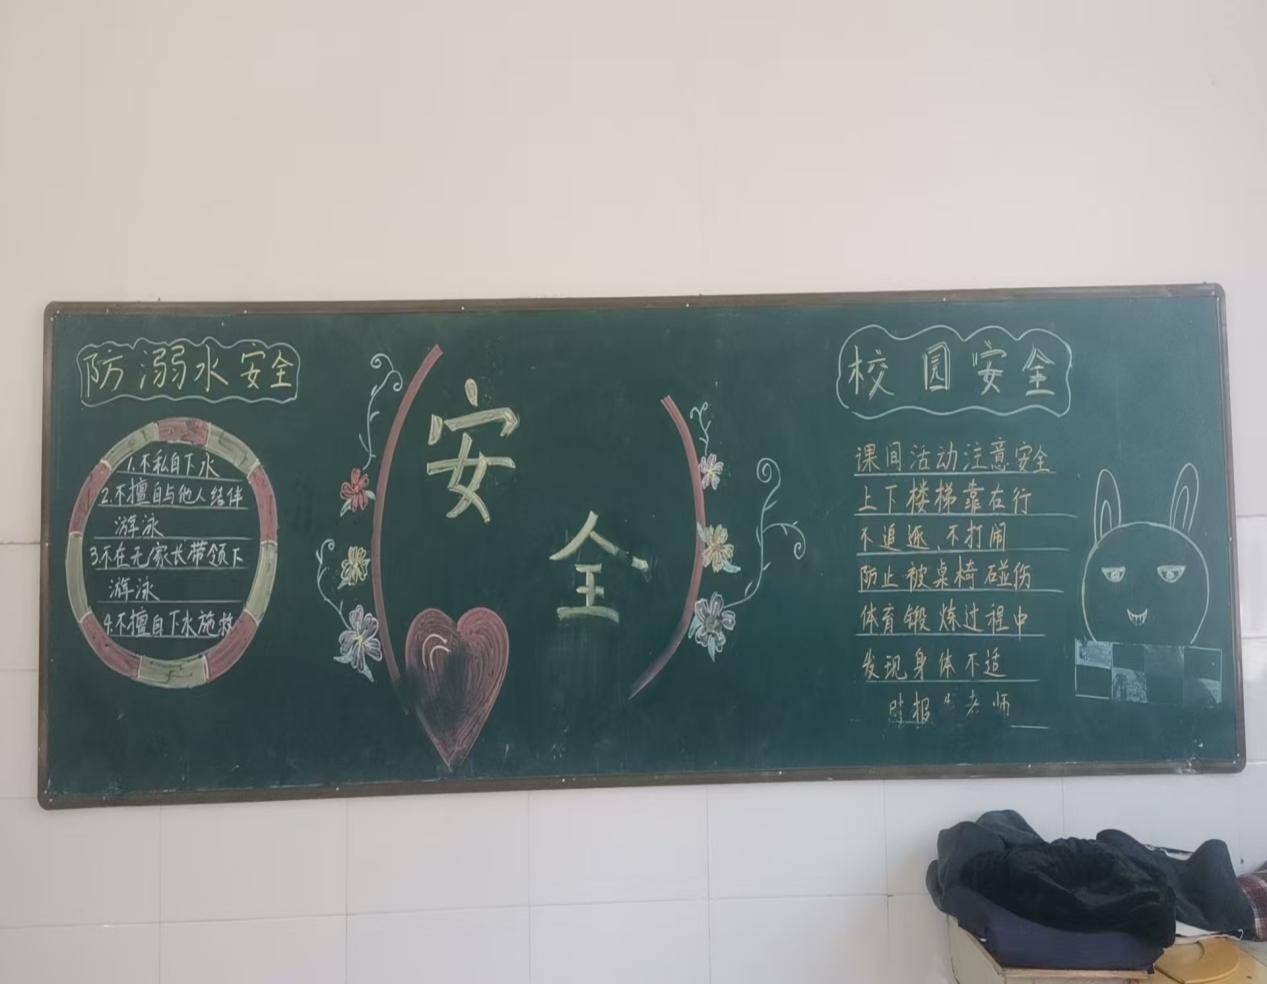 防溺水安全
1.不私自下水
2.不擅自与他人结伴
游泳
3不在无家长带领下
游泳
4.不擅自下水施救
安
全
校园安全
课间活动注意安全
上下楼梯靠右行
不追逐、不打闹
防止被桌椅碰伤
体育锻炼过程中
发现身体不适
时报 老师